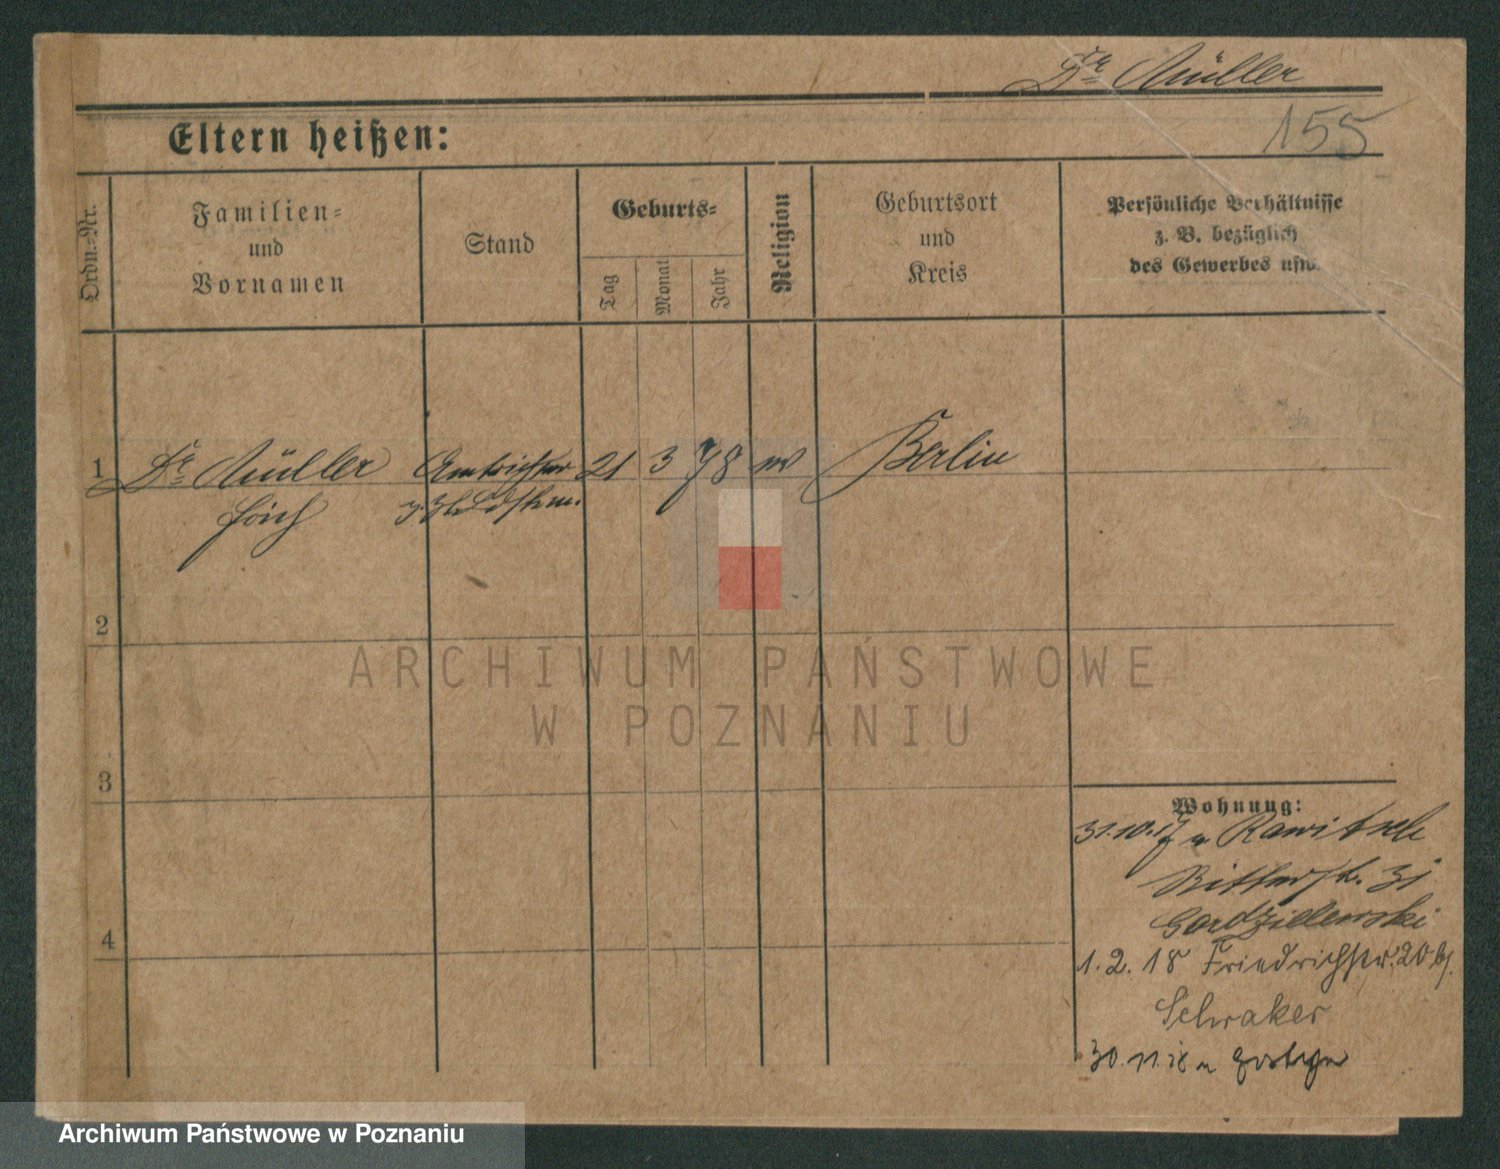 Dr. Müller
155
Eltern heißen:
Ordn.-Nr.
Familien-
und
Vornamen
Stand
Geburts-
Tag
Monat
Jahr
Religion
Geburtsort
und
Kreis
Persönliche Verhältnisse
z. B. bezüglich
des Gewerbes usw.
1 Dr. Müller Amtsrichter 21 3 78 Berlin
2
ARCHIWUM PAŃSTWOWE
W POZNANIU
3
Wohnung:
31.10.17 Rawitsch
Ritterstr. 31
4
1.2.18 Friedrichstr. 20 b/
Schraker
30.11.18 n
Archiwum Państwowe w Poznaniu